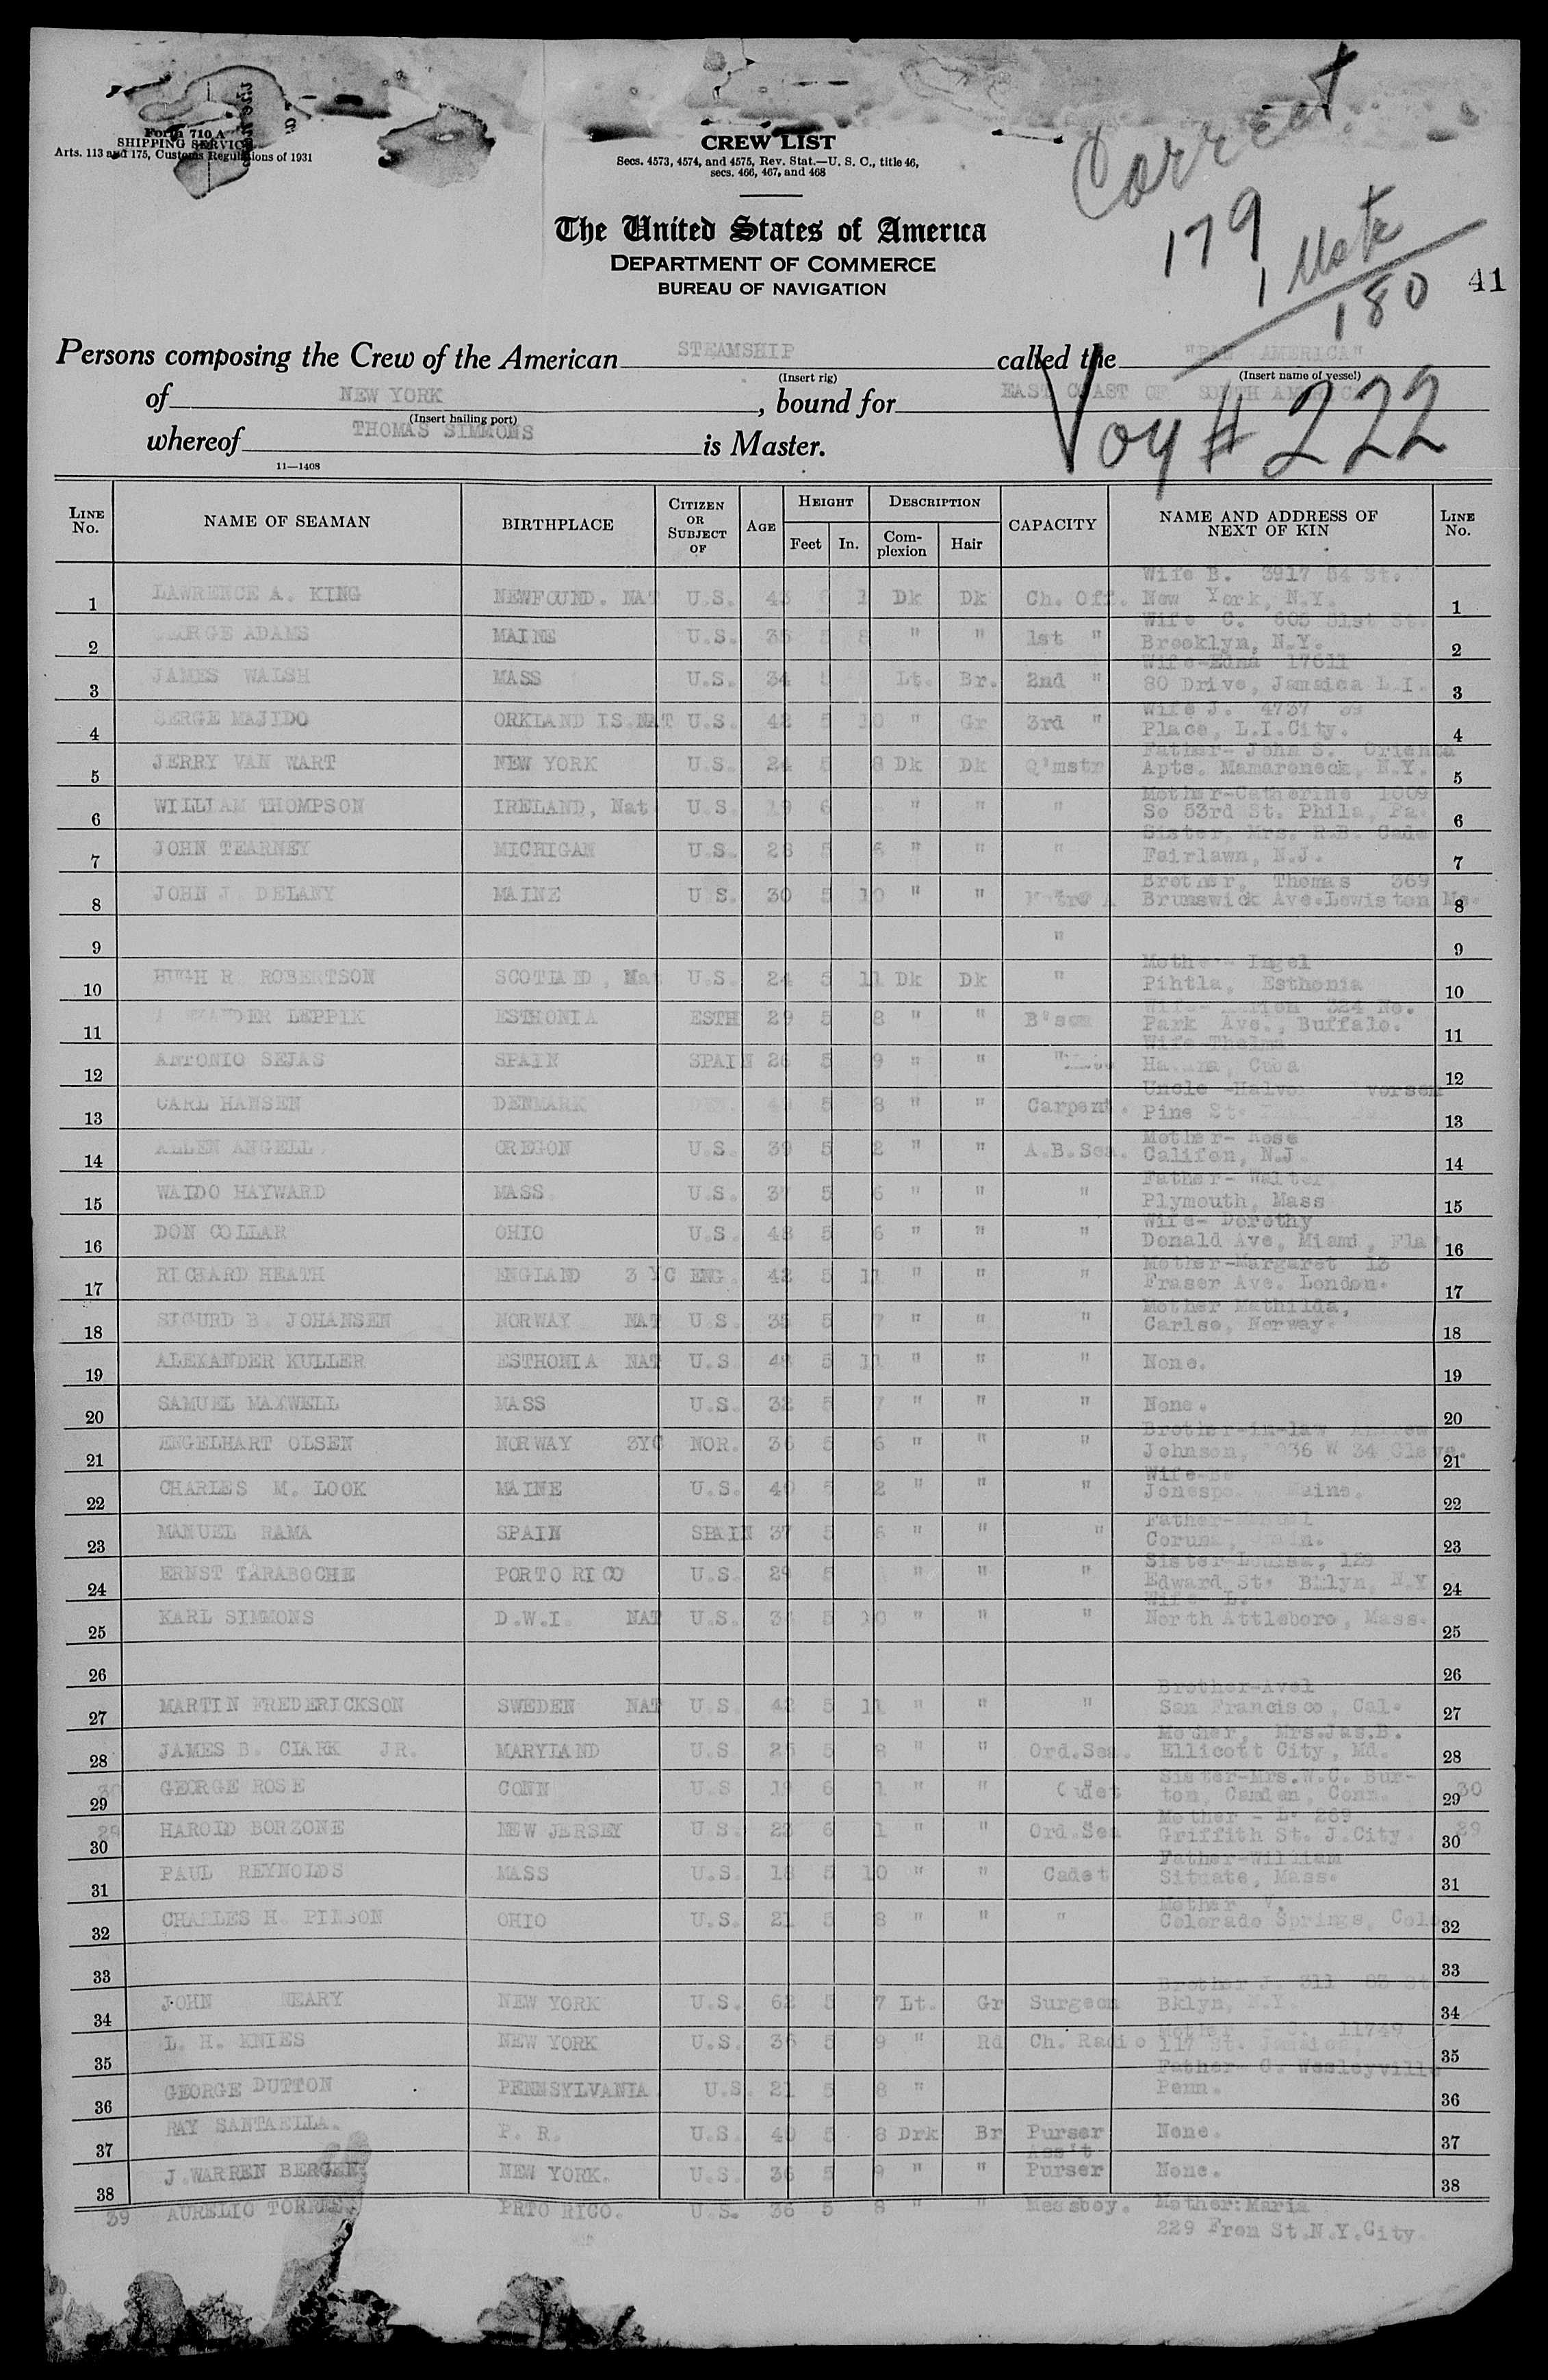 Form 710 A
SHIPPING SERVICE
Arts. 113 and 175, Customs Regulations of 1931
CREW LIST
Secs. 4573, 4574, and 4575, Rev. Stat.—U. S. C., title 46,
secs. 466, 467, and 468
The United States of America
DEPARTMENT OF COMMERCE
BUREAU OF NAVIGATION
Correct
179
1 Mstr
180
41
Persons composing the Crew of the American STEAMSHIP called the "PAN AMERICA"
(Insert rig) (Insert name of vessel)
of NEW YORK, bound for EAST COAST OF SOUTH AMERICA
(Insert hailing port)
whereof THOMAS SIMMONS is Master.
Voy # 222
11—1408
LINE No. NAME OF SEAMAN BIRTHPLACE CITIZEN OR SUBJECT OF AGE HEIGHT Feet In. DESCRIPTION Complexion Hair CAPACITY NAME AND ADDRESS OF NEXT OF KIN LINE No.
Wife B. 3917 54 St.
1 LAWRENCE A. KING NEWFOUND. NAT U.S. 43 1 Dk Dk Ch. Off. New York, N.Y. 1
Wife C. 605 51st St.
2 GEORGE ADAMS MAINE U.S. 35 5 8 " " 1st " Brooklyn, N.Y. 2
Wife-Edna 17611
3 JAMES WALSH MASS U.S. 34 5 Lt. Br. 2nd " 80 Drive, Jamaica L.I. 3
Wife J. 4737 39
4 SERGE MAJIDO ORKLAND IS.NAT U.S. 42 5 10 " Gr 3rd " Place, L.I.City. 4
Father- John S. Orienta
5 JERRY VAN WART NEW YORK U.S. 24 5 8 Dk Dk Q'mstr Apts. Mamaroneck, N.Y. 5
Mother-Catherine 1009
6 WILLIAM THOMPSON IRELAND, Nat U.S. 19 6 " " " So 53rd St. Phila, Pa. 6
Sister, Mrs. R.B. Cade
7 JOHN TEARNEY MICHIGAN U.S. 28 5 6 " " " Fairlawn, N.J. 7
Brother, Thomas 369
8 JOHN J. DELANY MAINE U.S. 30 5 10 " " Brunswick Ave.Lewiston Me. 8
9 " 9
Mother- Ingel
10 HUGH R. ROBERTSON SCOTLAND, Nat U.S. 24 5 11 Dk Dk " Pihtla, Esthonia 10
Wife- 324 No.
11 LEPPIK ESTHONIA ESTH 29 5 8 " " B'sun Park Ave., Buffalo. 11
Wife Thelma
12 ANTONIO SEJAS SPAIN SPAIN 26 5 9 " " " Havana, Cuba 12
Uncle -Halvo
13 CARL HANSEN DENMARK DEN. 5 8 " " Carpent. Pine St. 13
Mother- Rose
14 ALLEN ANGELL. OREGON U.S. 39 5 2 " " A.B.Sea. Califon, N.J. 14
Father- Walter
15 WALDO HAYWARD MASS. U.S. 37 5 6 " " " Plymouth, Mass 15
Wife- Dorothy
16 DON COLLAR OHIO U.S. 48 5 6 " " " Donald Ave, Miami, Fla 16
Mother-Margaret 13
17 RICHARD HEATH ENGLAND 3 YC ENG. 42 5 11 " " " Fraser Ave. London. 17
Mother Mathilda,
18 SIGURD B. JOHANSEN NORWAY NAT U.S. 35 5 7 " " " Carlso, Norway. 18
19 ALEXANDER KULLER ESTHONIA NAT U.S 48 5 11 " " " None. 19
20 SAMUEL MAXWELL MASS U.S. 32 5 7 " " " None. 20
Brother-in-law Andrew
21 ENGELHART OLSEN NORWAY 3YC NOR. 36 5 6 " " " Johnson, 36 W 34 Cleve. 21
22 CHARLES M. LOOK MAINE U.S. 40 5 2 " " " Maine. 22
Father-Manuel
23 MANUEL RAMA SPAIN SPAIN 37 5 6 " " " Coruna, Spain. 23
Sister-Louisa, 129
24 ERNST TARABOCHE PORTO RICO U.S. 29 5 " " " Edward St. Bklyn, N.Y 24
Wife L.
25 KARL SIMMONS D.W.I. NAT U.S. 5 10 " " " North Attleboro, Mass. 25
26 26
Brother-Avel
27 MARTIN FREDERICKSON SWEDEN NAT U.S. 42 5 11 " " " San Francisco, Cal. 27
Mother, Mrs.Jas.B.
28 JAMES B. CLARK JR. MARYLAND U.S 25 5 8 " " Ord.Sea. Ellicott City, Md. 28
Sister-Mrs.W.C. Bur-
30 29 GEORGE ROSE CONN U.S 19 6 1 " " Cadet ton, Camden, Conn. 29 30
Mother - L. 269
29 30 HAROLD BORZONE NEW JERSEY U.S. 23 6 1 " " Ord.Sea Griffith St. J.City. 30 29
Father-William
31 PAUL REYNOLDS MASS U.S. 18 5 10 " " Cadet Situate, Mass. 31
Mother V.
32 CHARLES H. PINSON OHIO U.S. 21 5 8 " " " Colorado Springs, Colo 32
33 33
Brother J. 311 83 St
34 JOHN NEARY NEW YORK U.S. 62 5 7 Lt. Gr Surgeon Bklyn, N.Y. 34
Mother C. 11749
35 L. H. KNIES NEW YORK U.S. 36 5 9 " Rd Ch. Radio 117 St. Jamaica, 35
Father- C. Wesleyville
36 GEORGE DUTTON PENNSYLVANIA. U.S. 21 5 8 " Penn. 36
37 RAY SANTAELLA. P. R. U.S. 40 5 8 Drk Br Purser None. 37
Ass't
38 J.WARREN BERGEN. NEW YORK. U.S. 36 5 9 " " Purser None. 38
39 AURELIO TORRES PRTO RICO. U.S. 36 5 8 " " Messboy. Mother:Maria
229 Fron St.N.Y.City.